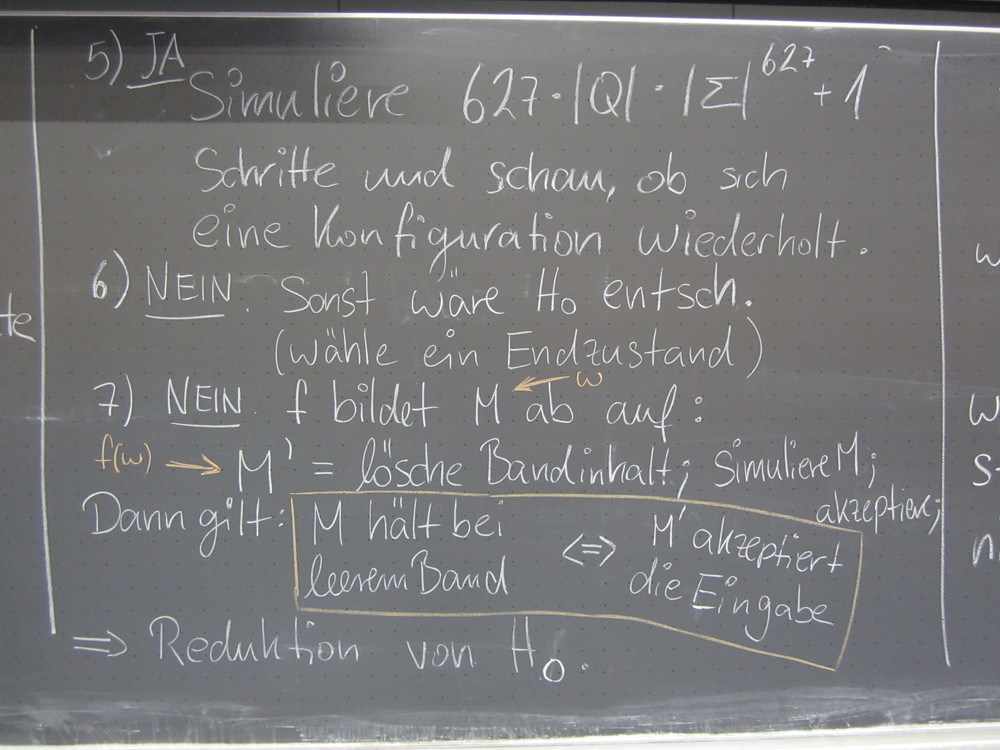 5) JA Simuliere 627·|Q|·|Σ|^627 + 1
Schritte und schau, ob sich
eine Konfiguration wiederholt.
6) NEIN. Sonst wäre H₀ entsch.
(wähle ein Endzustand)
7) NEIN. f bildet M ← w ab auf:
f(w) → M' = lösche Bandinhalt; Simuliere M;
akzeptiere;
Dann gilt: M hält bei <=> M' akzeptiert
leerem Band die Eingabe
=> Reduktion von H₀.
te
w
w
S
n